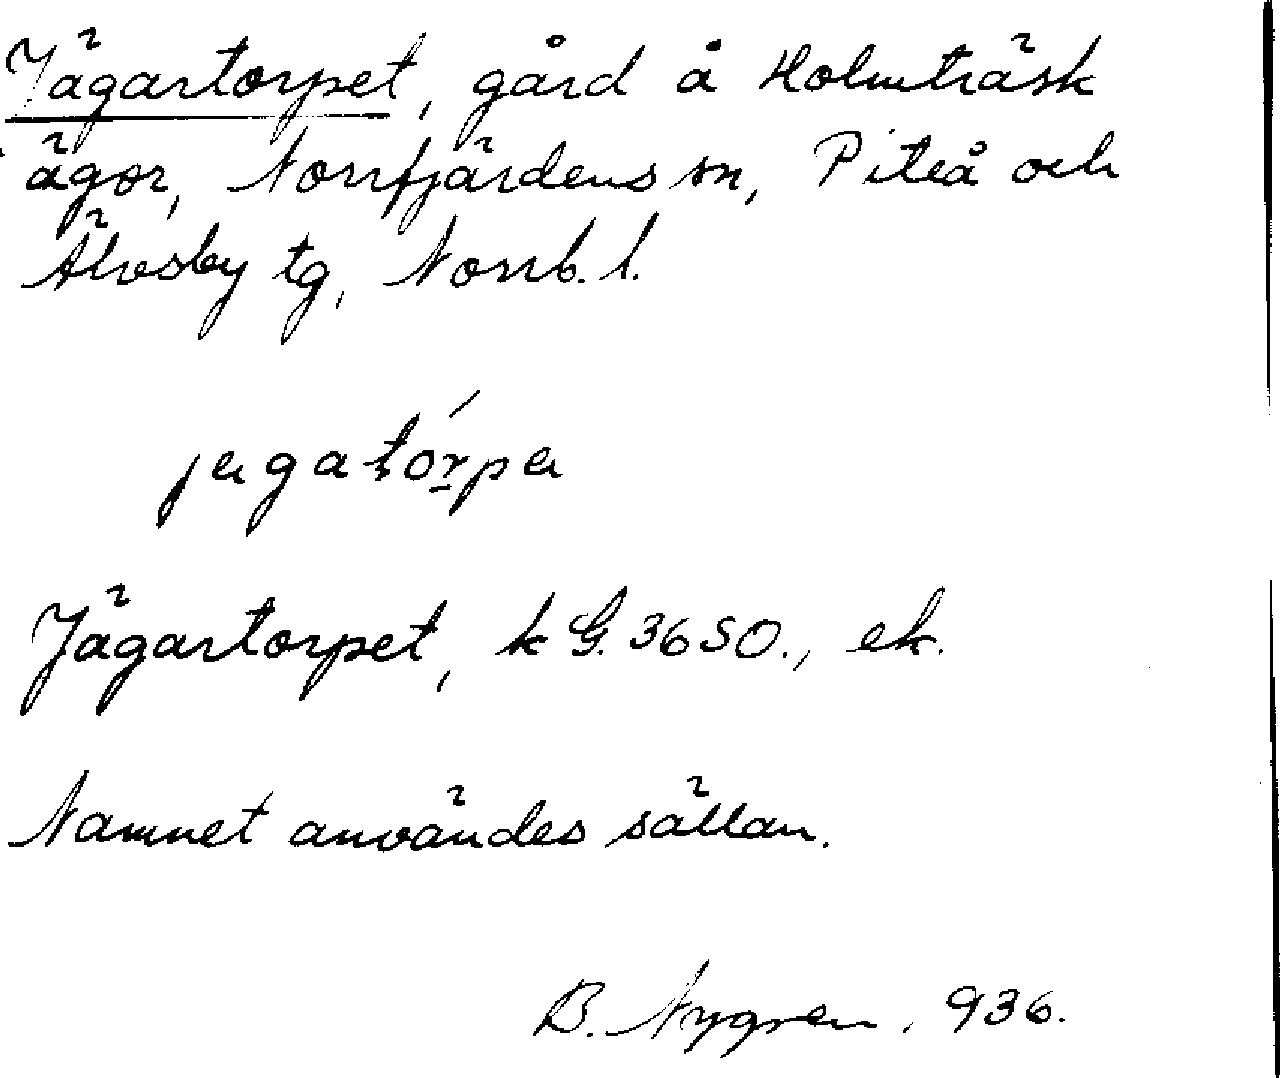 Jägartorpet, gård å Holmträsk
ägor, Norrfjärdens sn, Piteå och
Älvsby tg, Norrb. l.
Jägartorpet, k G. 36 SO., ek.
Namnet användes sällan.
B. Nygren, 936.